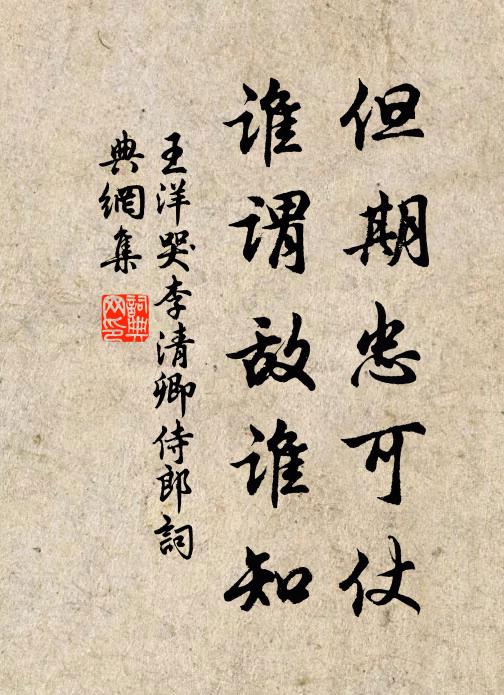 但期忠可仗
谁谓敌谁知
王洋哭李清卿侍郎詞
典網集
詞典
网印